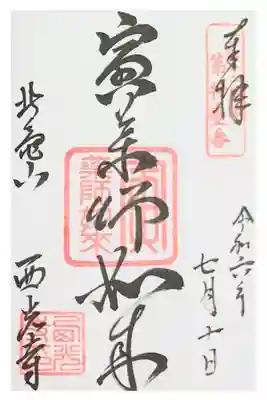 奉拝
令和六年
七月十日
寅薬師如来
北亀山
西光寺